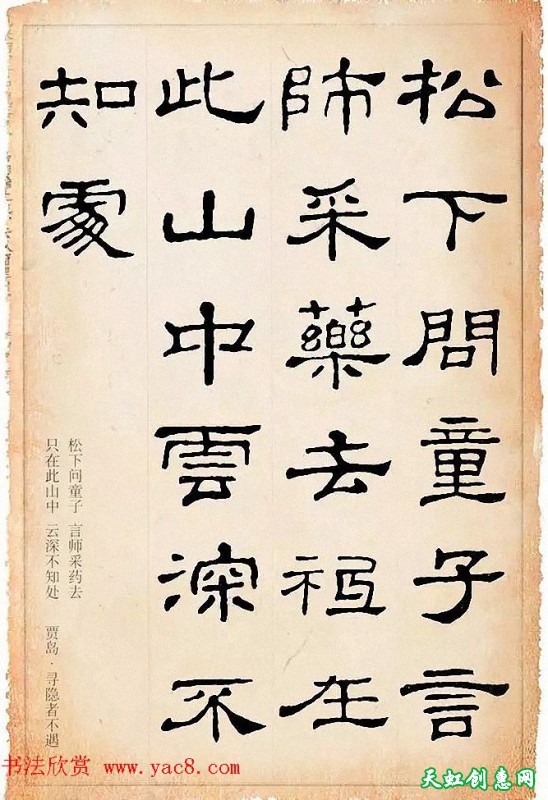 松下問童子言
師采藥去祗在
此山中雲深不
知處
松下问童子 言师采药去
只在此山中 云深不知处 贾岛·寻隐者不遇
书法欣赏 www.yac8.com
天虹创惠网